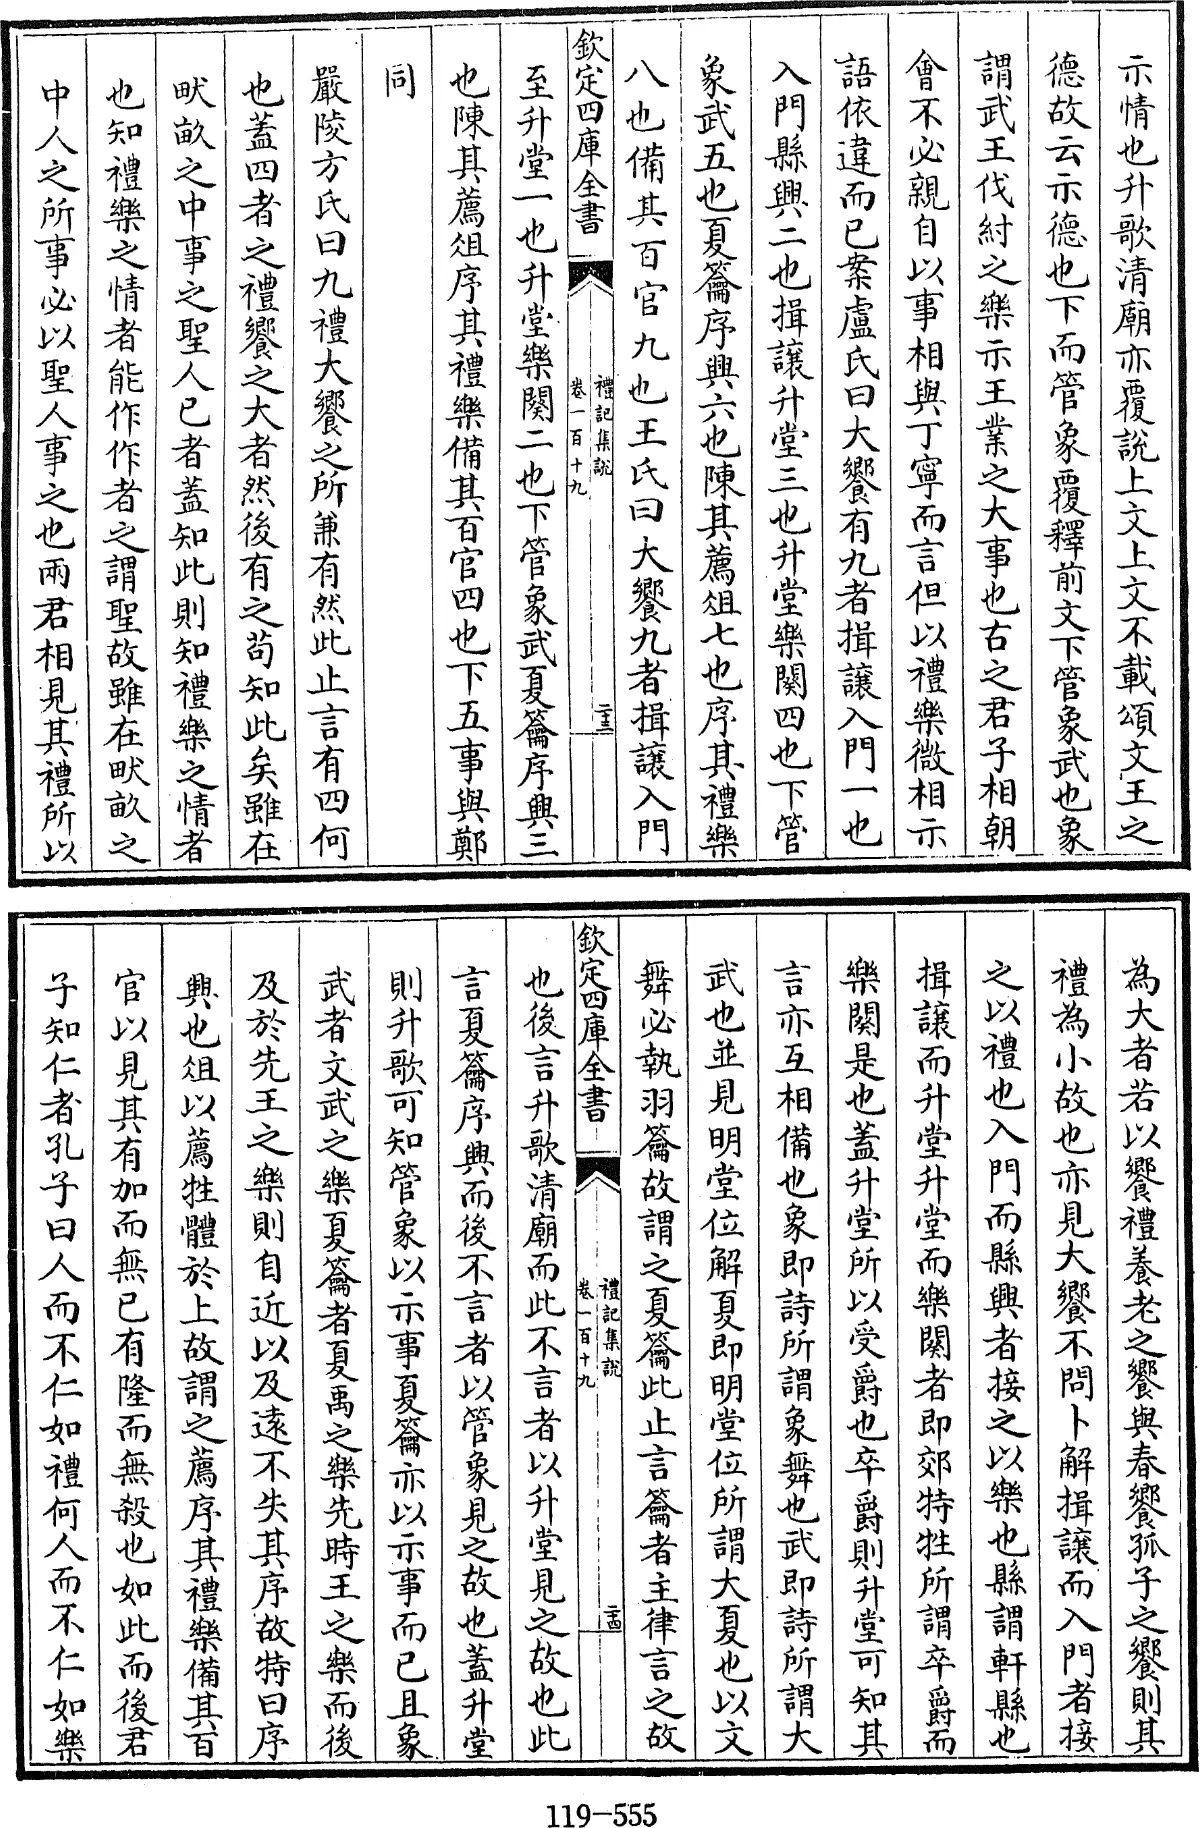 示情也升歌清廟亦覆說上文上文不載頌文王之
德故云示德也下而管象覆釋前文下管象武也象
謂武王伐紂之樂示王業之大事也古之君子相朝
會不必親自以事相與丁寧而言但以禮樂微相示
語依違而已案盧氏曰大饗有九者揖讓入門一也
入門縣興二也揖讓升堂三也升堂樂闋四也下管
象武五也夏籥序興六也陳其薦俎七也序其禮樂
八也備其百官九也王氏曰大饗九者揖讓入門
欽定四庫全書
禮記集說
卷一百十九
二十三
至升堂一也升堂樂闋二也下管象武夏籥序興三
也陳其薦俎序其禮樂備其百官四也下五事與鄭
同
嚴陵方氏曰九禮大饗之所兼有然此止言有四何
也蓋四者之禮饗之大者然後有之苟知此矣雖在
畎畝之中事之聖人已者蓋知此則知禮樂之情者
也知禮樂之情者能作作者之謂聖故雖在畎畝之
中人之所事必以聖人事之也兩君相見其禮所以
為大者若以饗禮養老之饗與春饗孤子之饗則其
禮為小故也亦見大饗不問卜解揖讓而入門者接
之以禮也入門而縣興者接之以樂也縣謂軒縣也
揖讓而升堂升堂而樂闋者即郊特牲所謂卒爵而
樂闋是也蓋升堂所以受爵也卒爵則升堂可知其
言亦互相備也象即詩所謂象舞也武即詩所謂大
武也並見明堂位解夏即明堂位所謂大夏也以文
舞必執羽籥故謂之夏籥此止言籥者主律言之故
欽定四庫全書
禮記集說
卷一百十九
二十四
也後言升歌清廟而此不言者以升堂見之故也此
言夏籥序興而後不言者以管象見之故也蓋升堂
則升歌可知管象以示事夏籥亦以示事而已且象
武者文武之樂夏籥者夏禹之樂先時王之樂而後
及於先王之樂則自近以及遠不失其序故特曰序
興也俎以薦牲體於上故謂之薦序其禮樂備其百
官以見其有加而無已有隆而無殺也如此而後君
子知仁者孔子曰人而不仁如禮何人而不仁如樂
119-555